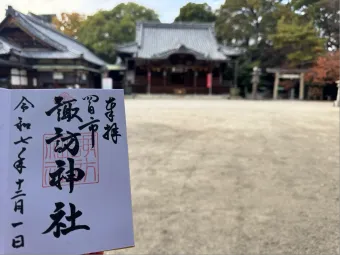 奉拝
四日市
諏訪神社
令和七年十二月一日